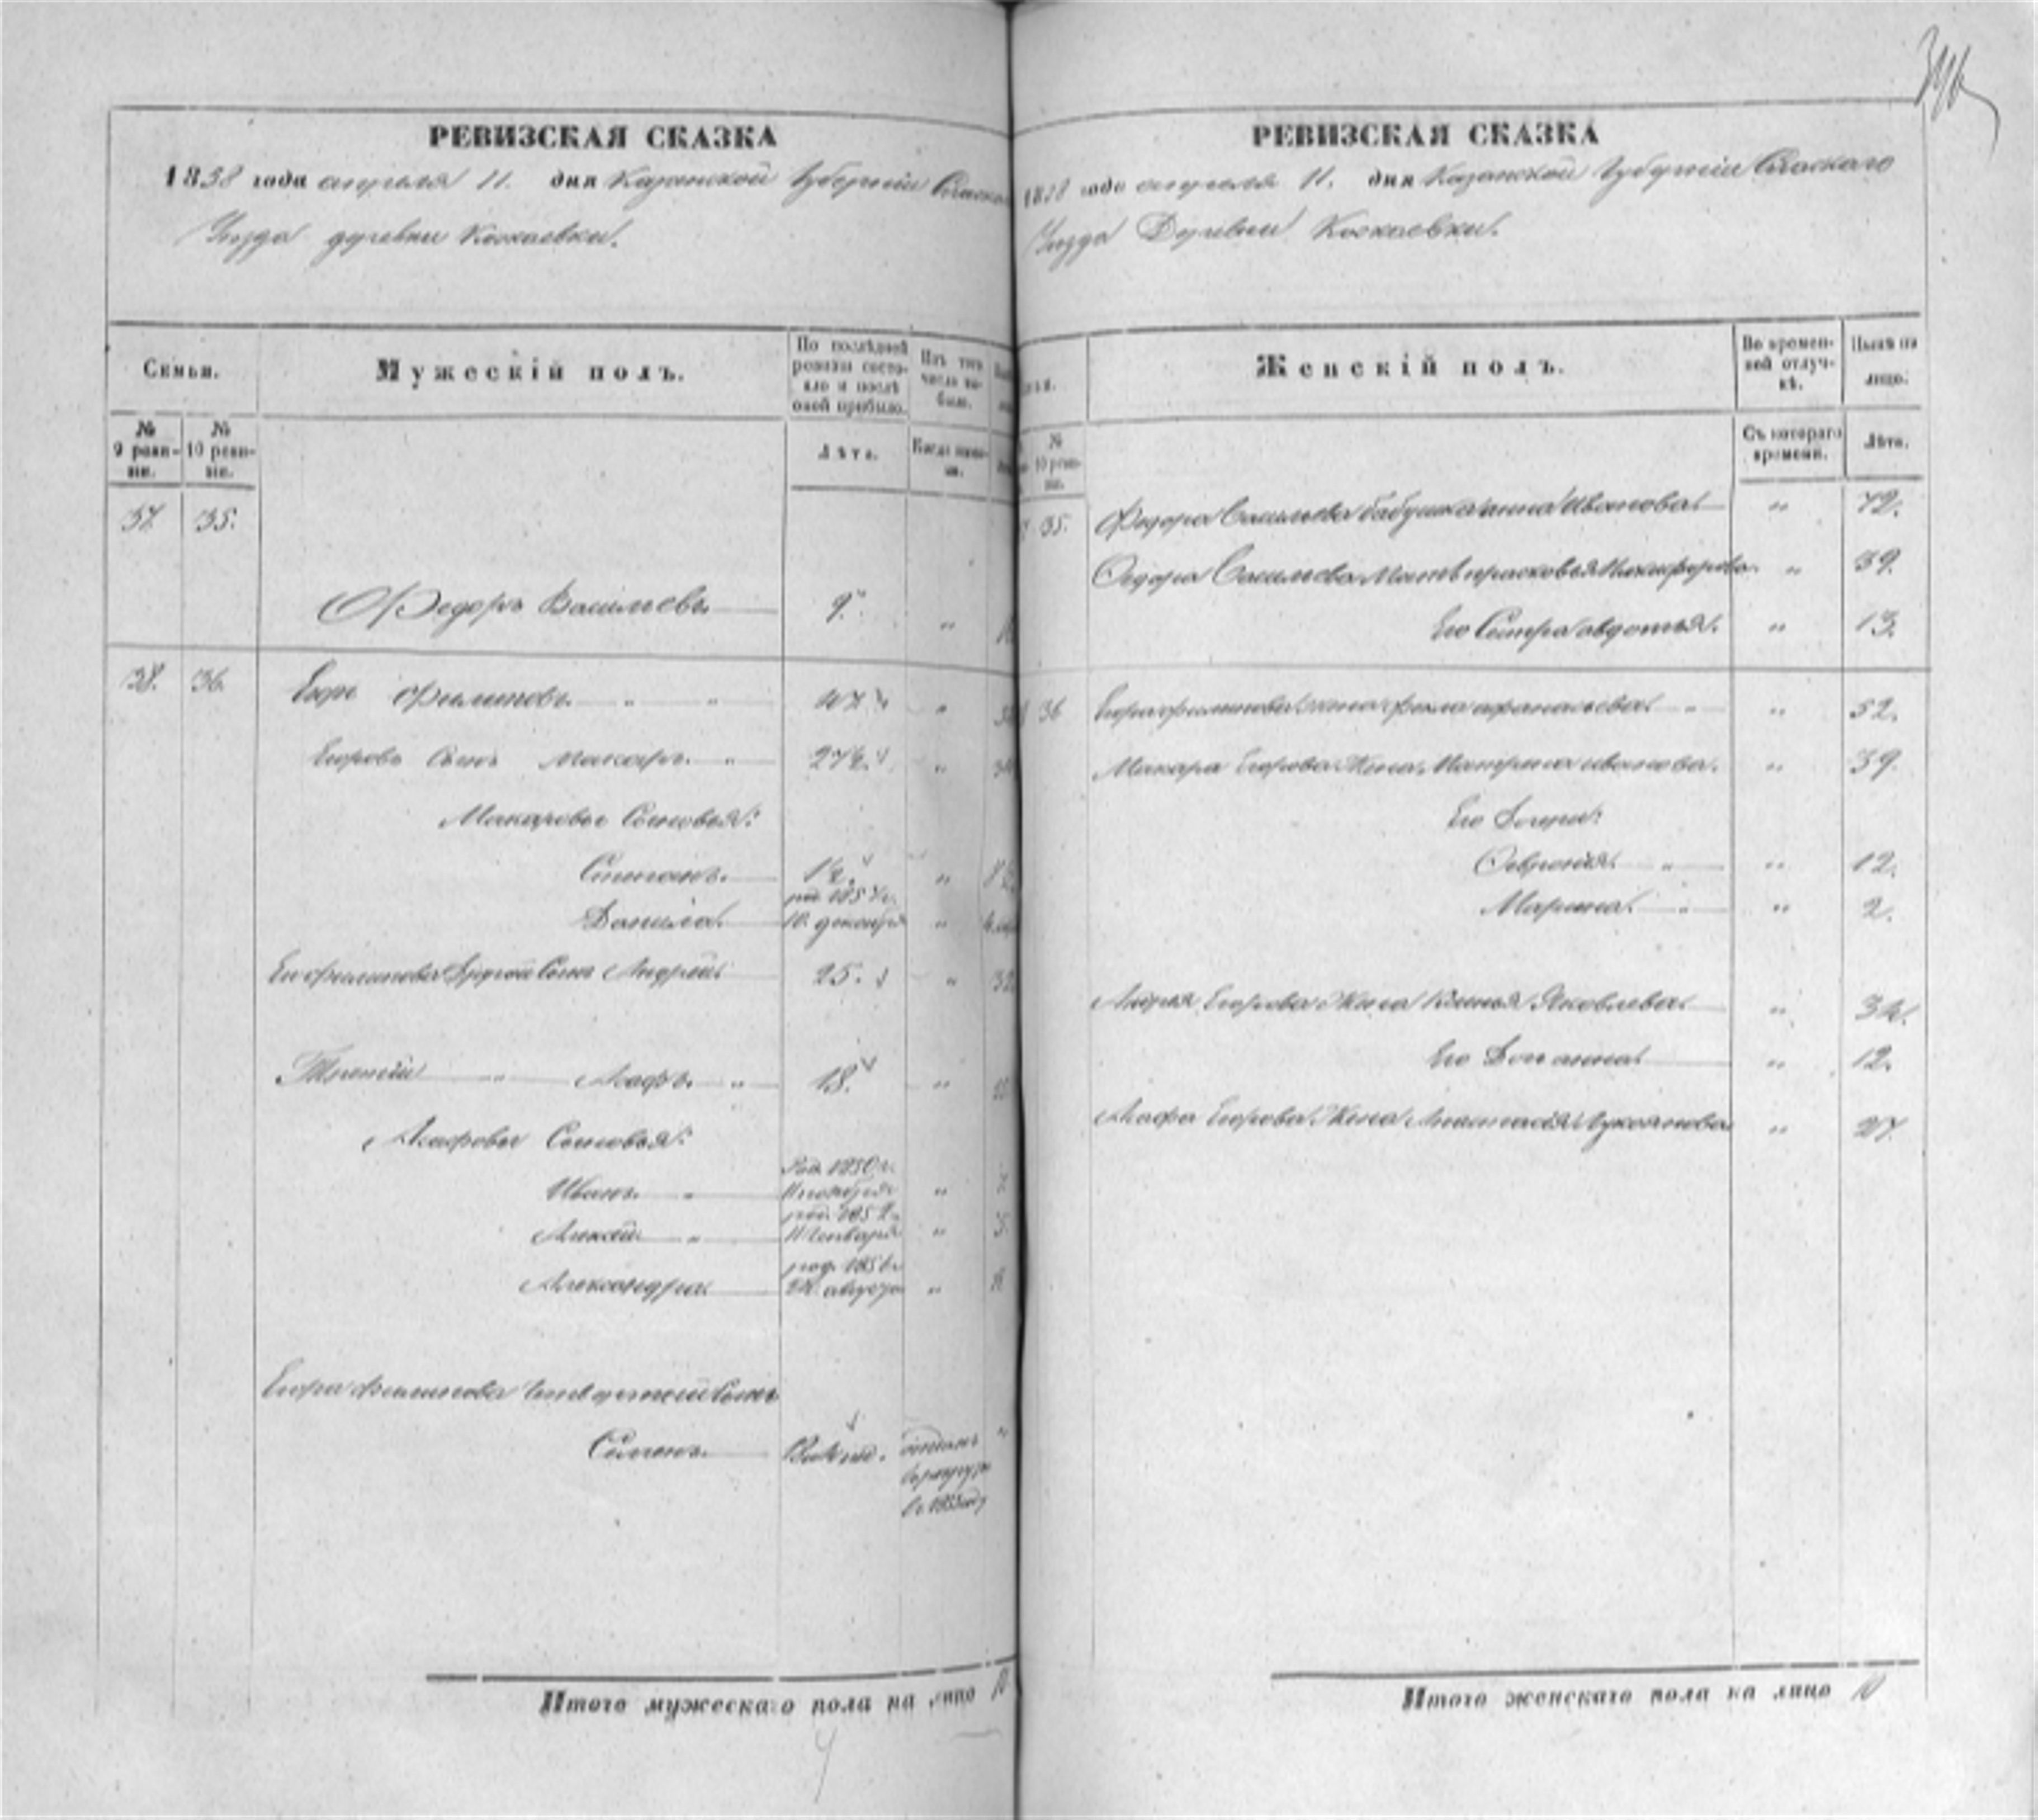 РЕВИЗСКАЯ СКАЗКА
1858 года апреля 11. дня Казанской Губернии Спаско
Уезда деревни Коскаевки.
Семьи.
Мужескій полъ.
По послѣдней ревизіи состояло и послѣ оной прибыло.
Изъ того числа выбыло.
№ 9 ревизіи.
№ 10 ревизіи.
Лѣта.
Когда именно.
37. 35.
Федоръ Васильевъ 9. "
38. 36. Егоръ Филиповъ " " 47 "
Егоровъ Сынъ Макаръ " 27½. "
Макаровы Сыновья:
Степанъ. 1½. "
род. 1857г.
Данила. 10. декабря "
Филипова Другой Сынъ Андрей. 25. "
Третій " Агафъ. " 18. "
Агафовы Сыновья:
Род. 1850 г.
Иванъ. " ноября "
род. 185
Алексей " Генваря "
род. 1856г
Александра 24. августа "
Егора Филипова Четвертой Сынъ
Семенъ. отданъ "
в рекруты
в 1855 году
Итого мужескаго пола на лицо 10
РЕВИЗСКАЯ СКАЗКА
1858 года апреля 11. дня Казанской Губернии Спаскаго
Уезда Деревни Коскаевки.
Женскій полъ.
Во временной отлучкѣ.
Нынѣ на лицо.
№ 10 ревизіи.
Съ котораго времени.
Лѣта.
35. Федора Васильева бабушка анна Иванова. " 72.
Федора Васильева Мать прасковья Никифорова " 39.
Его Сестра авдотья. " 13.
36 Егора филипова жена фекла афанасьева. " " 52.
Макара Егорова Жена Матрена иванова. " 39.
Его Дочери:
Феврония. " " 12.
Марина. " " 2.
Андрея Егорова Жена Ксенья Яковлева. " 34.
Его Дочь анна. " 12.
Агафа Егорова Жена Анастасія Лукоянова " 27.
Итого женскаго пола на лицо 10